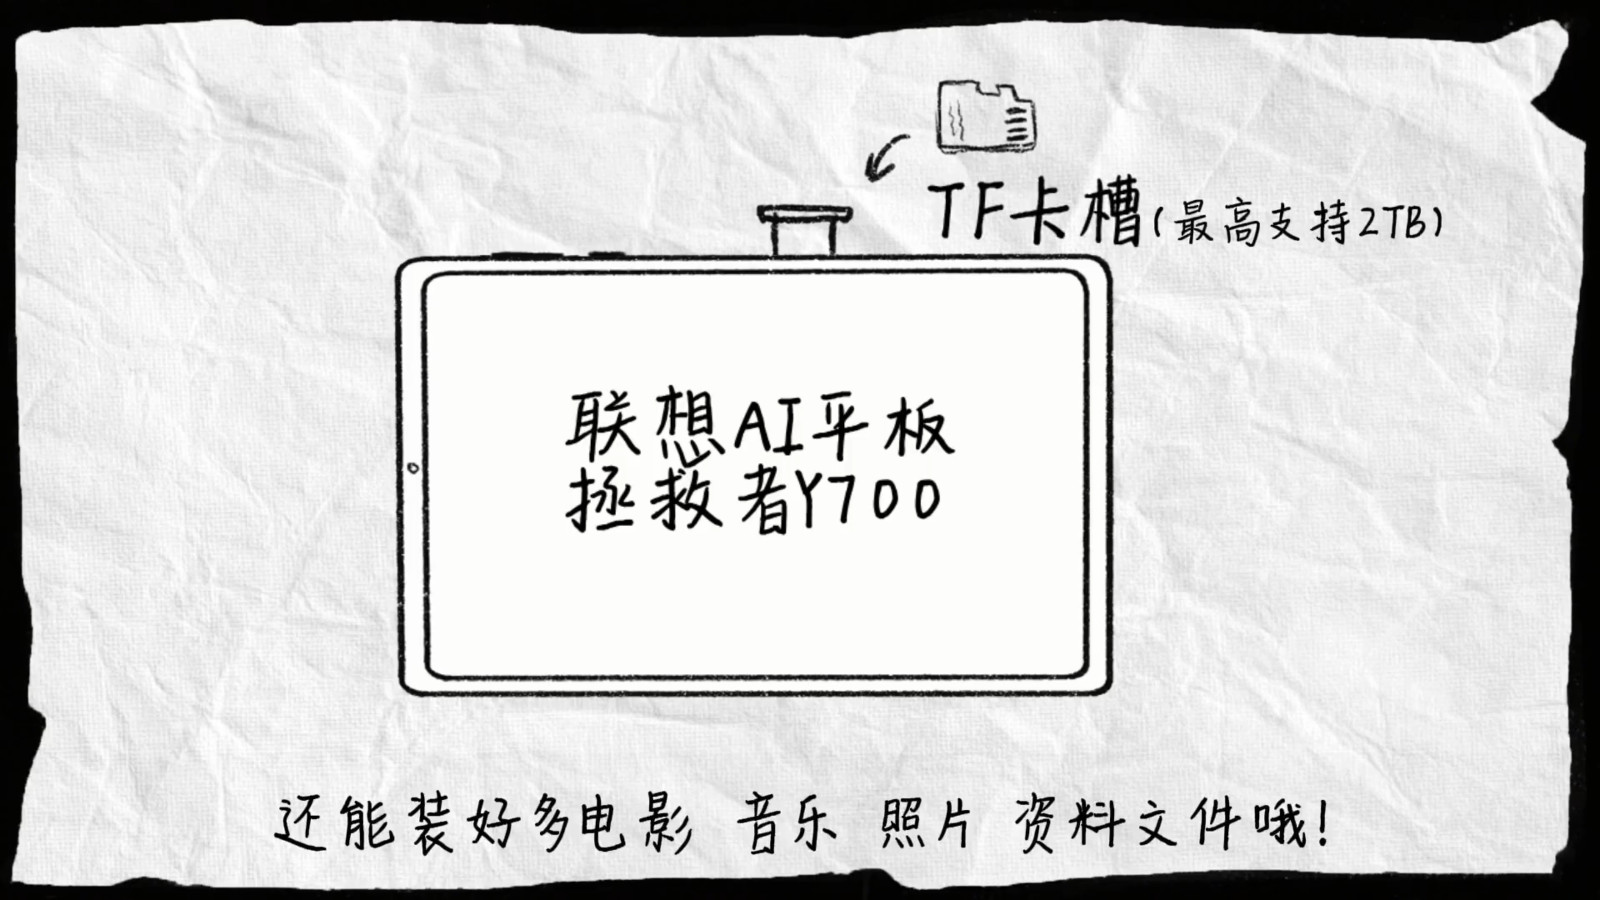 TF卡槽(最高支持2TB)
联想AI平板
拯救者Y700
还能装好多电影 音乐 照片 资料文件哦!